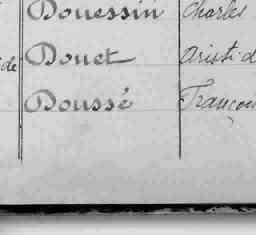 Douessin Charles
de Douet Aristid
Doussé Françoi